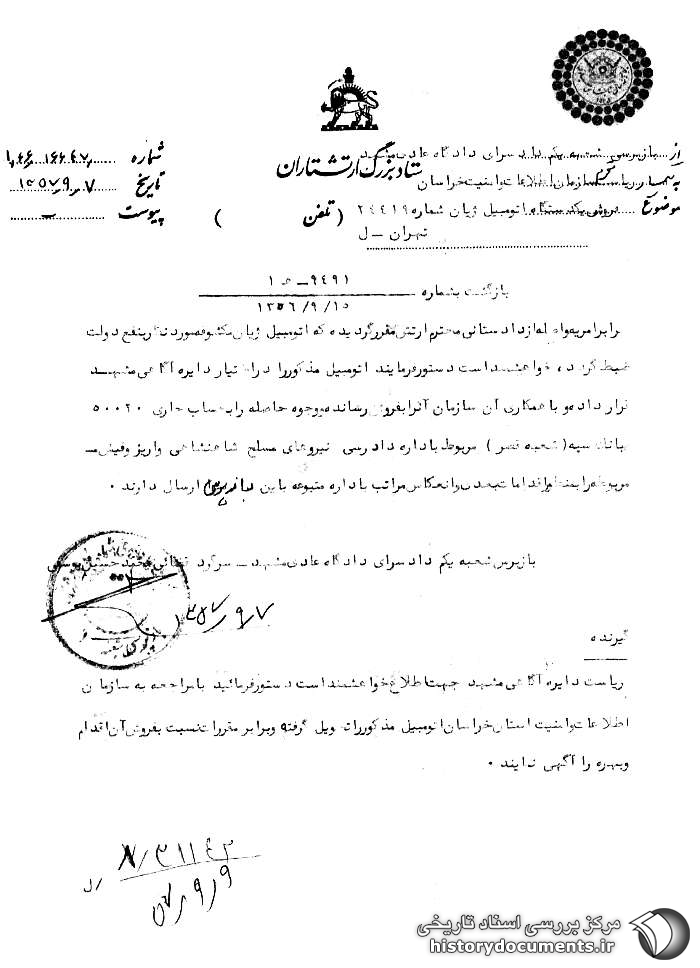 ستاد بزرگ ارتشتاران
از بازپرسی شعبه یکم دادسرای دادگاه عادی مشهد
به ریاست سازمان اطلاعات و امنیت خراسان
موضوع فروش یکدستگاه اتومبیل ژیان شماره ۲۴۴۱۹
تهران - ل
( تلفن )
شماره
تاریخ ۱۳۵۷٫۹٫۷
پیوست -
بازگشت بشماره ۹۴۹۱
۱۳۵۶/۹/۱۵
برابر امریه واصله از دادستانی محترم ارتش مقرر گردیده که اتومبیل ژیان مکشوفه مورد نظر بنفع دولت
ضبط گردد ، خواهشمند است دستور فرمایند اتومبیل مذکور را در اختیار دایره آگاهی مشهد
قرار داده و با همکاری آن سازمان آنرا بفروش رسانده و وجوه حاصله را بحساب جاری ۵۰۰۲۰
بانک سپه ( شعبه قصر ) مربوط باداره دادرسی نیروهای مسلح شاهنشاهی واریز و فیش
مربوطه را بمنظور اقدامات بعدی و انعکاس مراتب باداره متبوعه باین بازپرسی ارسال دارند .
بازپرس شعبه یکم دادسرای دادگاه عادی مشهد - سرگرد قضائی
گیرنده
ریاست دایره آگاهی مشهد جهت اطلاع خواهشمند است دستور فرمائید با مراجعه به سازمان
اطلاعات و امنیت استان خراسان اتومبیل مذکور را تحویل گرفته و برابر مقررات نسبت بفروش آن اقدام
و بهره را آگهی نمایند .
مرکز بررسی اسناد تاریخی
historydocuments.ir